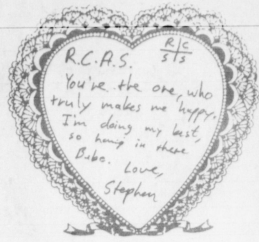 R.C.A.S.
R|C
S|S
You're the one, who
truly makes me happy.
I'm doing my best,
so hang in there
Bubo.
Love,
Stephen